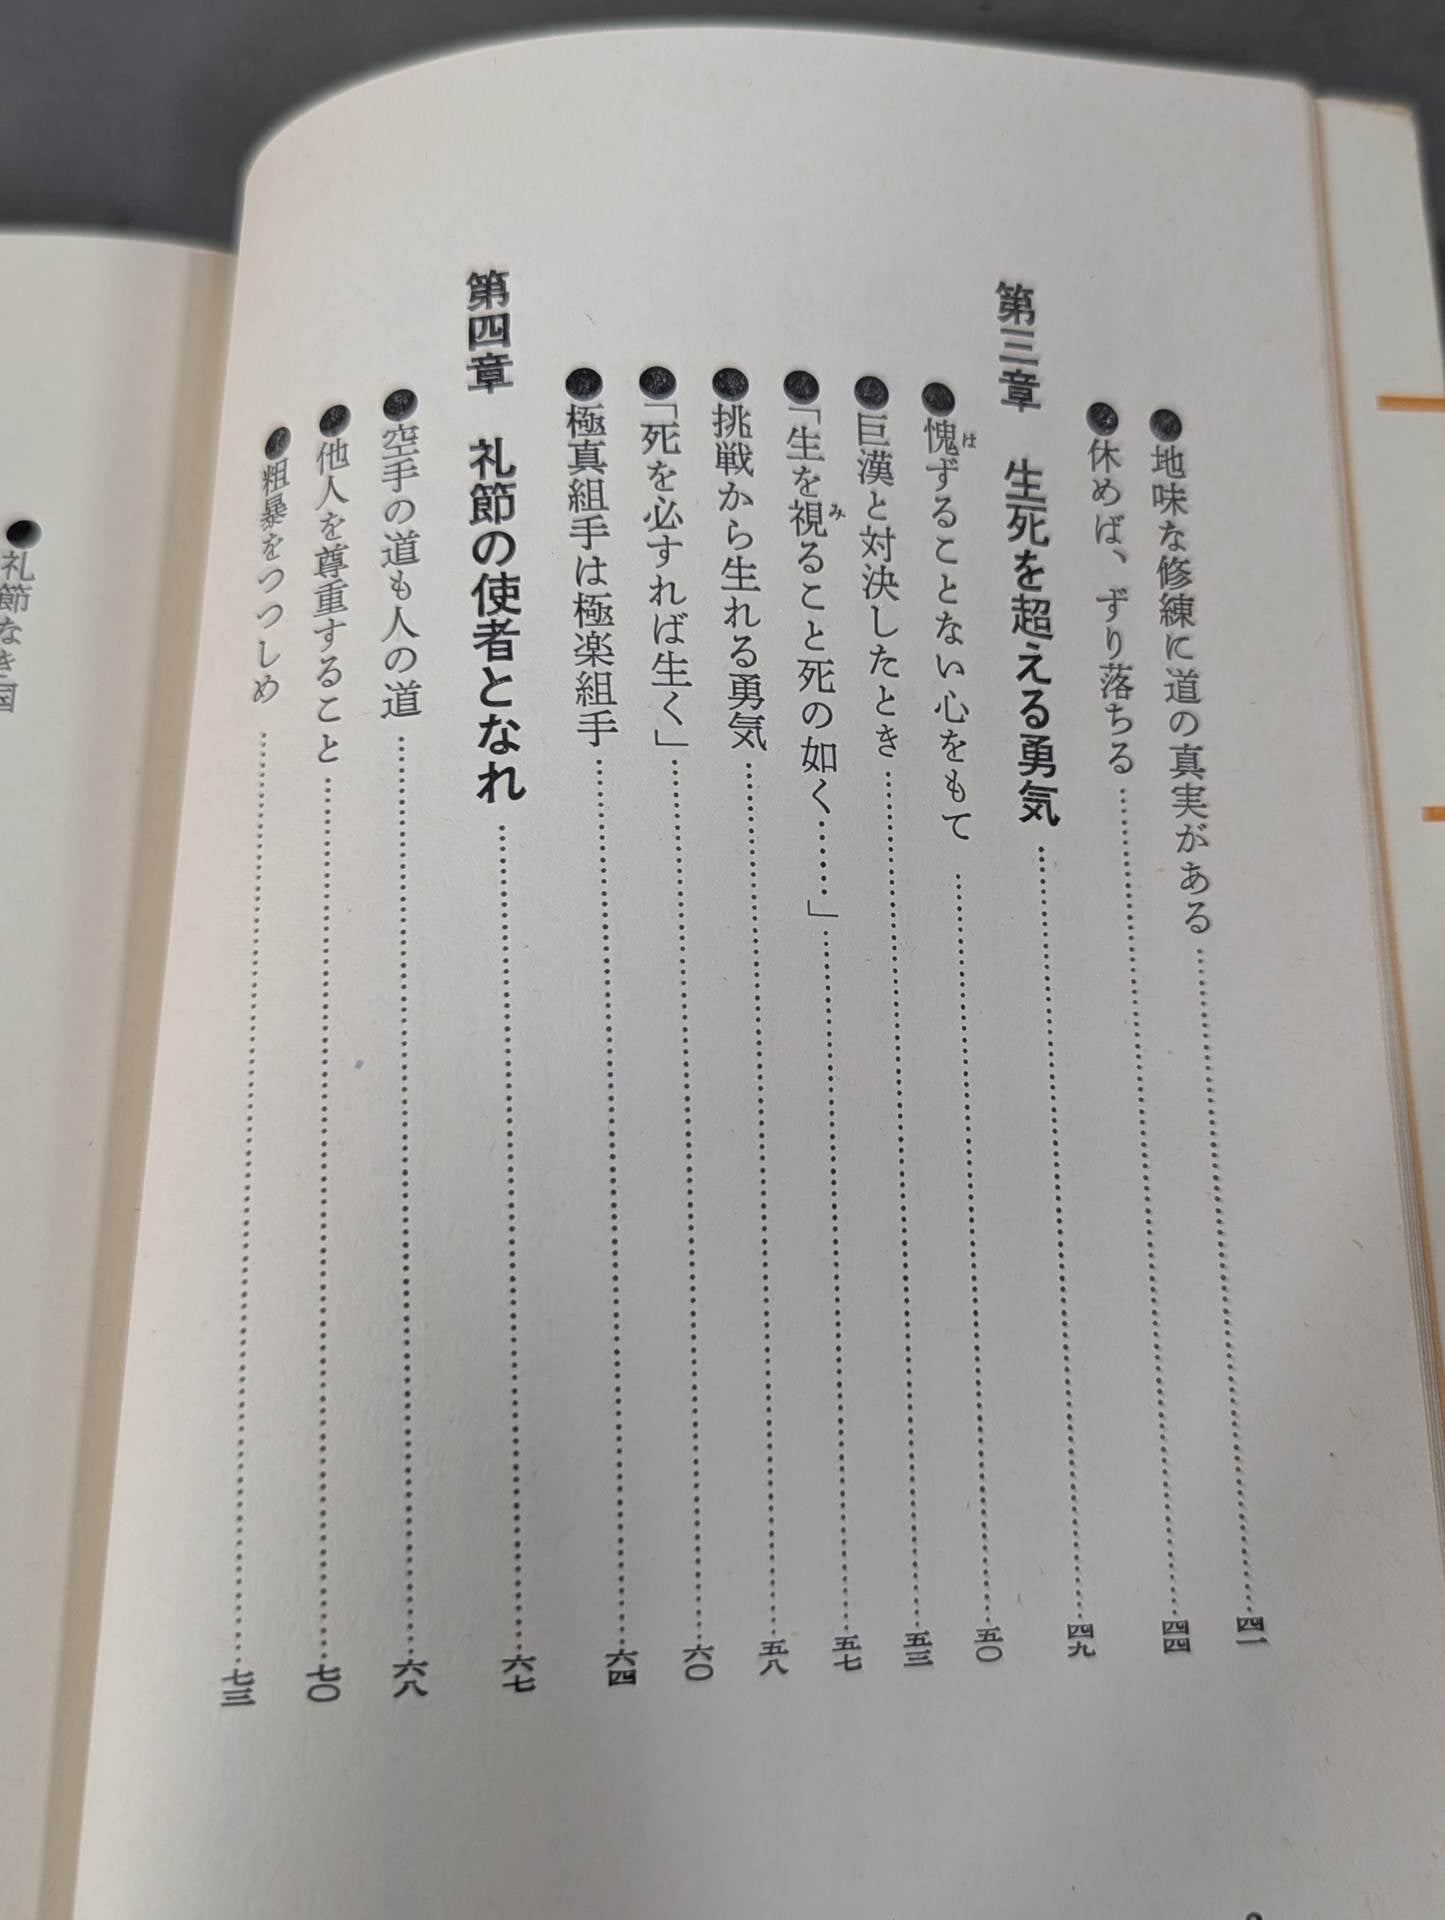 ●地味な修練に道の真実がある…………四一
●休めば、ずり落ちる…………四四
第三章　生死を超える勇気…………四九
●愧ずることない心をもて…………五〇
●巨漢と対決したとき…………五三
●「生を視ること死の如く……」…………五七
●挑戦から生れる勇気…………五八
●「死を必すれば生く」…………六〇
●極真組手は極楽組手…………六四
第四章　礼節の使者となれ…………六七
●空手の道も人の道…………六八
●他人を尊重すること…………七〇
●粗暴をつつしめ…………七三
●礼節なき国